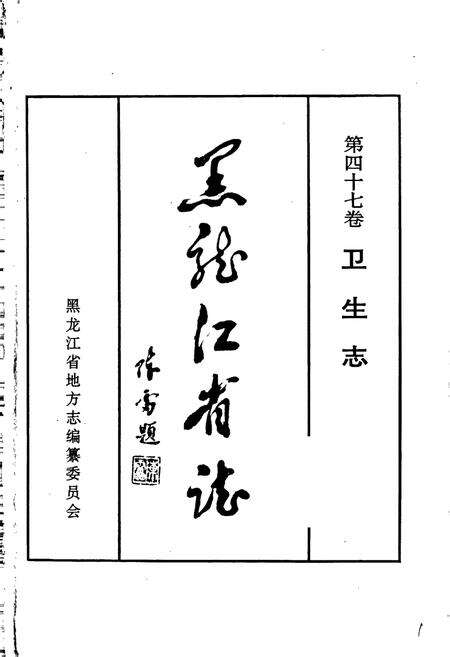 第四十七卷 卫生志
黑龙江省志
陈雷题
黑龙江省地方志编纂委员会